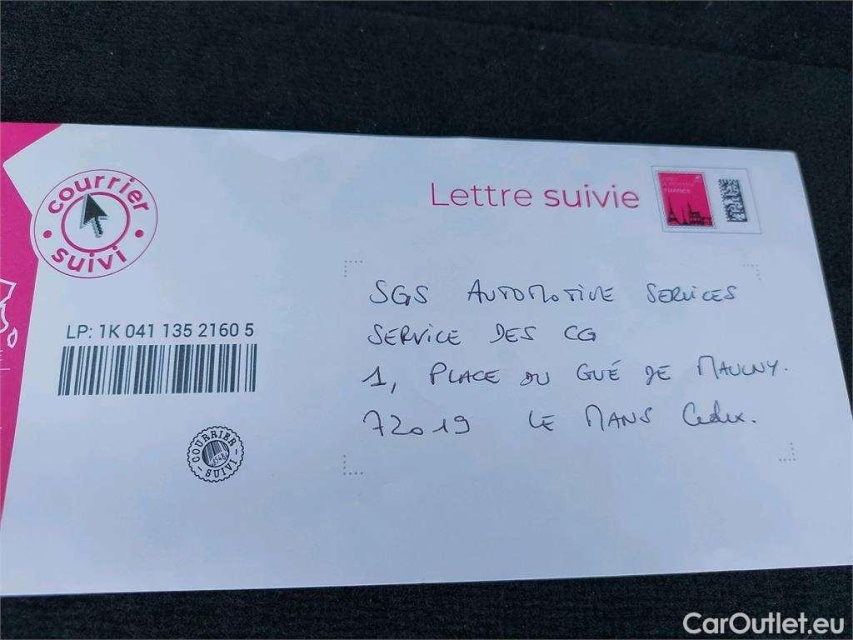 courrier
suivi
Lettre suivie
FRANCE
SGS AUTOMOTIVE SERVICES
SERVICE DES CG
1, PLACE DU GUÉ DE MAULNY.
72019 LE MANS Cedex.
LP: 1K 041 135 2160 5
COURRIER
SUIVI
CarOutlet.eu